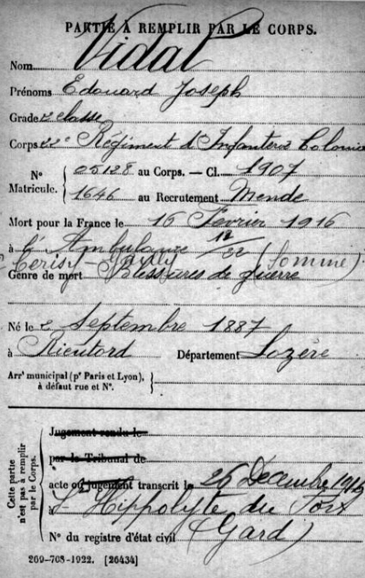 PARTIE À REMPLIR PAR LE CORPS.
Nom Vidal
Prénoms Edouard Joseph
Grade 2e classe
Corps 22e Régiment d'Infanterie Colonia
N° Matricule. { 25128 au Corps. — Cl. 1907
1646 au Recrutement Mende
Mort pour la France le 16 Fevrier 1916
à l'Ambulance 12/22 (Somme)
Cerisy-Gailly
Genre de mort Blessures de guerre
Né le 2 Septembre 1887
à Rieutord Département Lozère
Arrt municipal (pr Paris et Lyon), à défaut rue et N°. }
Cette partie n'est pas à remplir par le Corps.
Jugement rendu le
par le Tribunal de
acte ou jugement transcrit le 26 Décembre
à St Hippolyte du Fort
(Gard)
N° du registre d'état civil
269-708-1922. [26434]